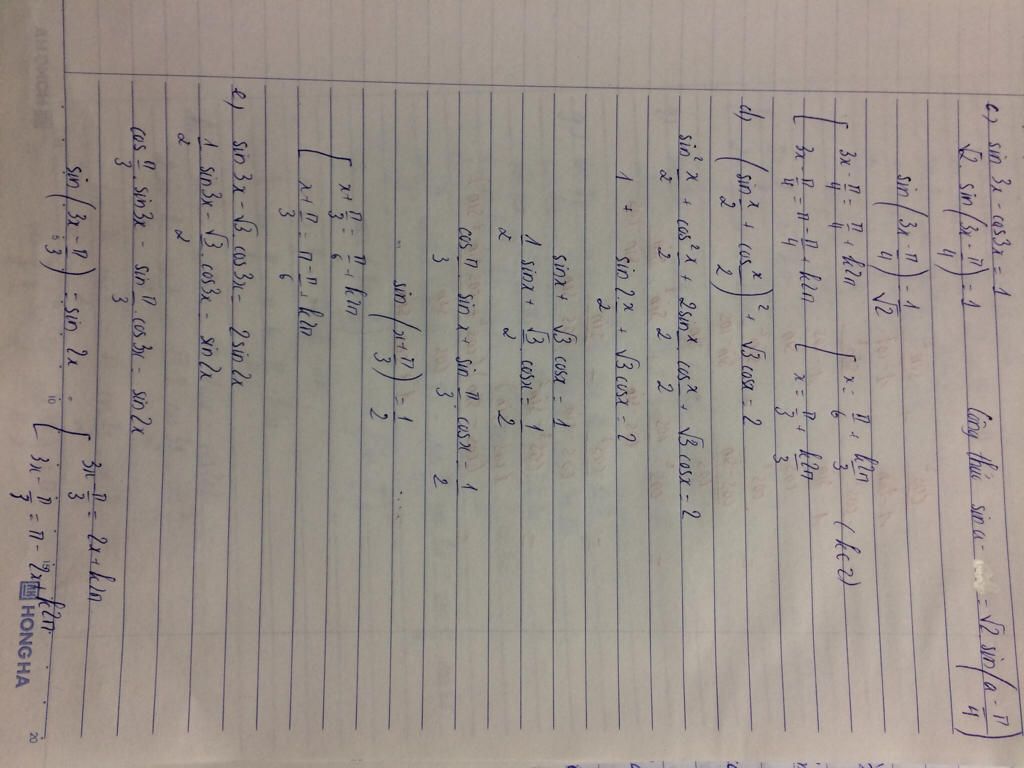 c) sin 3x - cos3x = 1 Công thức sina - = √2 sin(a - π/4)
√2 sin(3x - π/4) = 1
sin(3x - π/4) = 1/√2
[ 3x - π/4 = π/4 + k2π [ x = π/6 + k2π/3 (k∈Z)
3x - π/4 = π - π/4 + k2π x = π/3 + k2π/3
d) (sin x/2 + cos x/2)² + √3 cosx = 2
sin² x/2 + cos² x/2 + 2sin x/2 cos x/2 + √3 cosx = 2
1 + sin 2.x/2 + √3 cosx = 2
sinx + √3 cosx = 1
1/2 sinx + √3/2 cosx = 1/2
cos π/3 sinx + sin π/3 . cosx = 1/2
sin(x + π/3) = 1/2
[ x + π/3 = π/6 + k2π
x + π/3 = π - π/6 + k2π
e) sin 3x - √3 cos3x = 2sin2x
1/2 sin3x - √3/2 cos3x = sin2x
cos π/3 sin3x - sin π/3 . cos3x = sin2x
sin(3x - π/3) = sin 2x [ 3x - π/3 = 2x + k2π
3x - π/3 = π - 2x + k2π
HONGHA
10
15
20